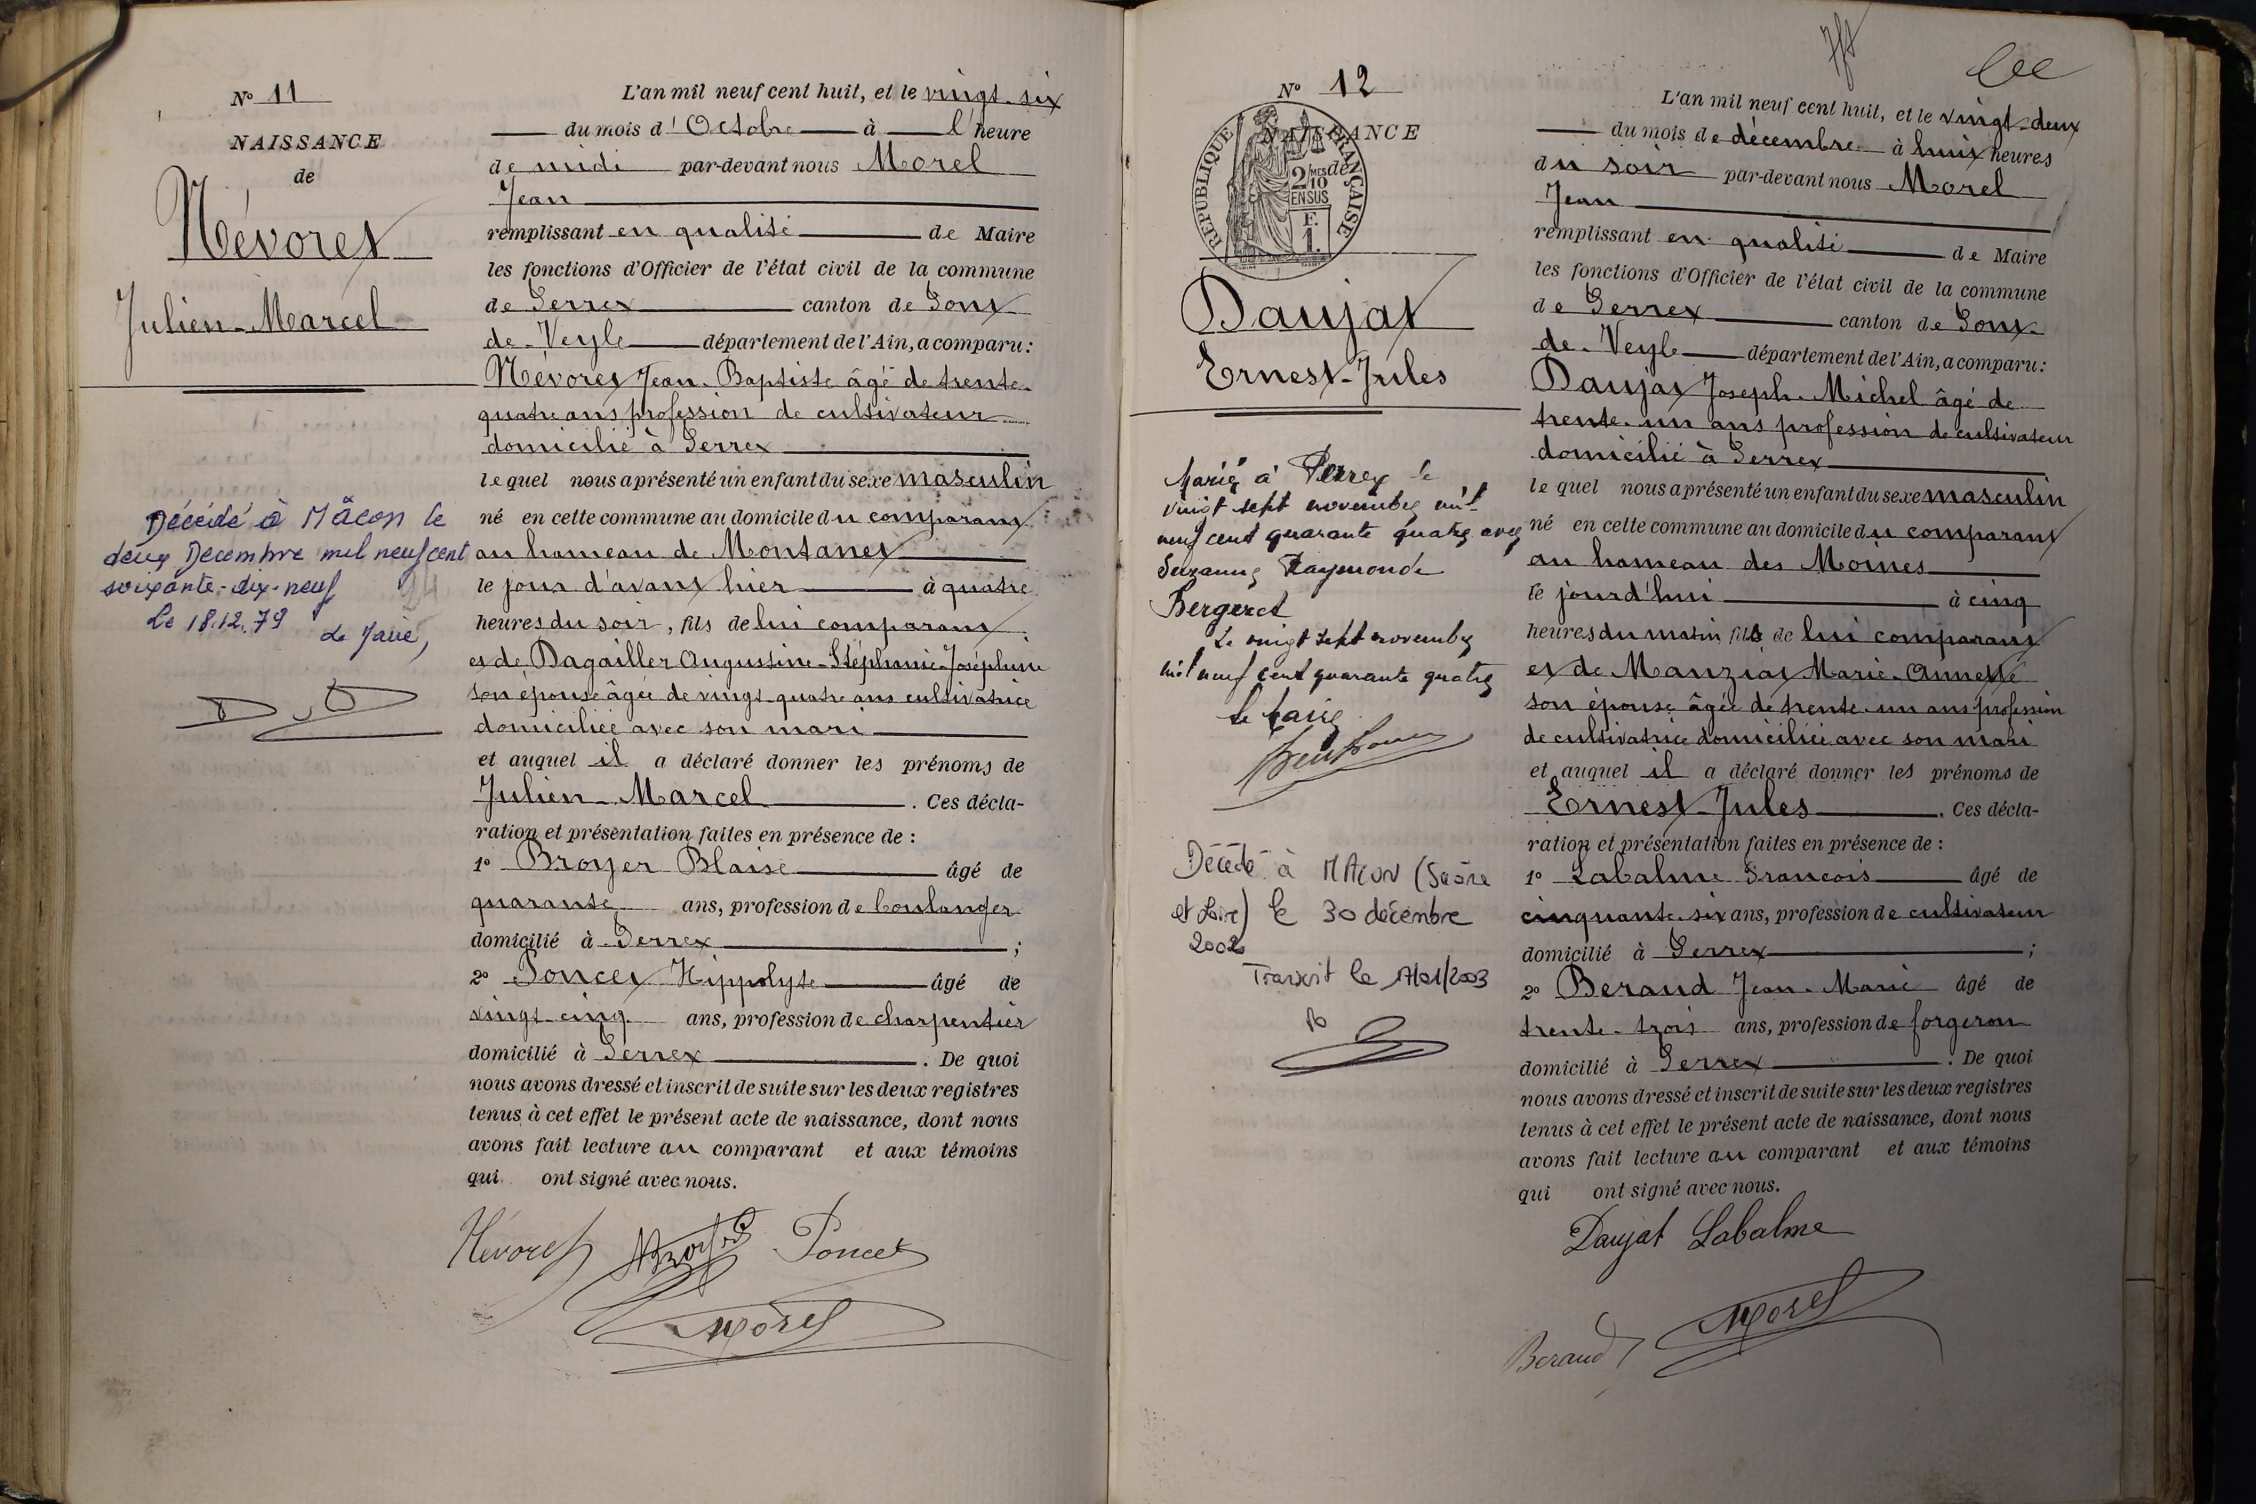 N° 11
NAISSANCE
de
Névoret
Julien-Marcel
Décédé à Mâcon le
deux Décembre mil neuf cent
soixante-dix-neuf
Le 18.12.79
Le Maire,
L'an mil neuf cent huit, et le vingt-six
du mois d'Octobre à l'heure
de midi par-devant nous Morel
Jean
remplissant en qualité de Maire
les fonctions d'Officier de l'état civil de la commune
de Perrex canton de Pont
de-Veyle département de l'Ain, a comparu:
Névoret Jean-Baptiste âgé de trente-
quatre ans profession de cultivateur
domicilié à Perrex
lequel nous a présenté un enfant du sexe masculin
né en cette commune au domicile du comparant
au hameau de Montanet
le jour d'avant hier à quatre
heures du soir, fils de lui comparant
et de Dagallier Augustine-Stéphanie-Joséphine
son épouse âgée de vingt-quatre ans cultivatrice
domiciliée avec son mari
et auquel il a déclaré donner les prénoms de
Julien-Marcel. Ces décla-
ration et présentation faites en présence de :
1° Broyer Blaise âgé de
quarante ans, profession de boulanger
domicilié à Perrex ;
2° Poncet Hippolyte âgé de
vingt-cinq ans, profession de charpentier
domicilié à Perrex. De quoi
nous avons dressé et inscrit de suite sur les deux registres
tenus à cet effet le présent acte de naissance, dont nous
avons fait lecture au comparant et aux témoins
qui ont signé avec nous.
Névoret Broyer Poncet
Morel
N° 12
NAISSANCE
de
RÉPUBLIQUE FRANÇAISE
2 MES 10 EN SUS
F. 1.
Daujat
Ernest-Jules
Marié à Perrex le
vingt sept novembre mil
neuf cent quarante quatre avec
Suzanne Raymonde
Bergeret
Le vingt sept novembre
mil neuf cent quarante quatre
Le Maire
Décédé à MACON (Saône
et Loire) le 30 décembre
2002
Transcrit le 17/01/2003
L'an mil neuf cent huit, et le vingt-deux
du mois de décembre à huit heures
du soir par-devant nous Morel
Jean
remplissant en qualité de Maire
les fonctions d'Officier de l'état civil de la commune
de Perrex canton de Pont-
de-Veyle département de l'Ain, a comparu:
Daujat Joseph-Michel âgé de
trente-un ans profession de cultivateur
domicilié à Perrex
lequel nous a présenté un enfant du sexe masculin
né en cette commune au domicile du comparant
au hameau des Moines
le jourd'hui à cinq
heures du matin fils de lui comparant
et de Manziat Marie-Annette
son épouse âgée de trente-un ans profession
de cultivatrice domiciliée avec son mari
et auquel il a déclaré donner les prénoms de
Ernest-Jules. Ces décla-
ration et présentation faites en présence de :
1° Labalme François âgé de
cinquante-six ans, profession de cultivateur
domicilié à Perrex ;
2° Beraud Jean-Marie âgé de
trente-trois ans, profession de forgeron
domicilié à Perrex. De quoi
nous avons dressé et inscrit de suite sur les deux registres
tenus à cet effet le présent acte de naissance, dont nous
avons fait lecture au comparant et aux témoins
qui ont signé avec nous.
Daujat Labalme
Morel
Beraud